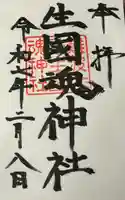 奉拝
生國魂神社
令和七年二月八日